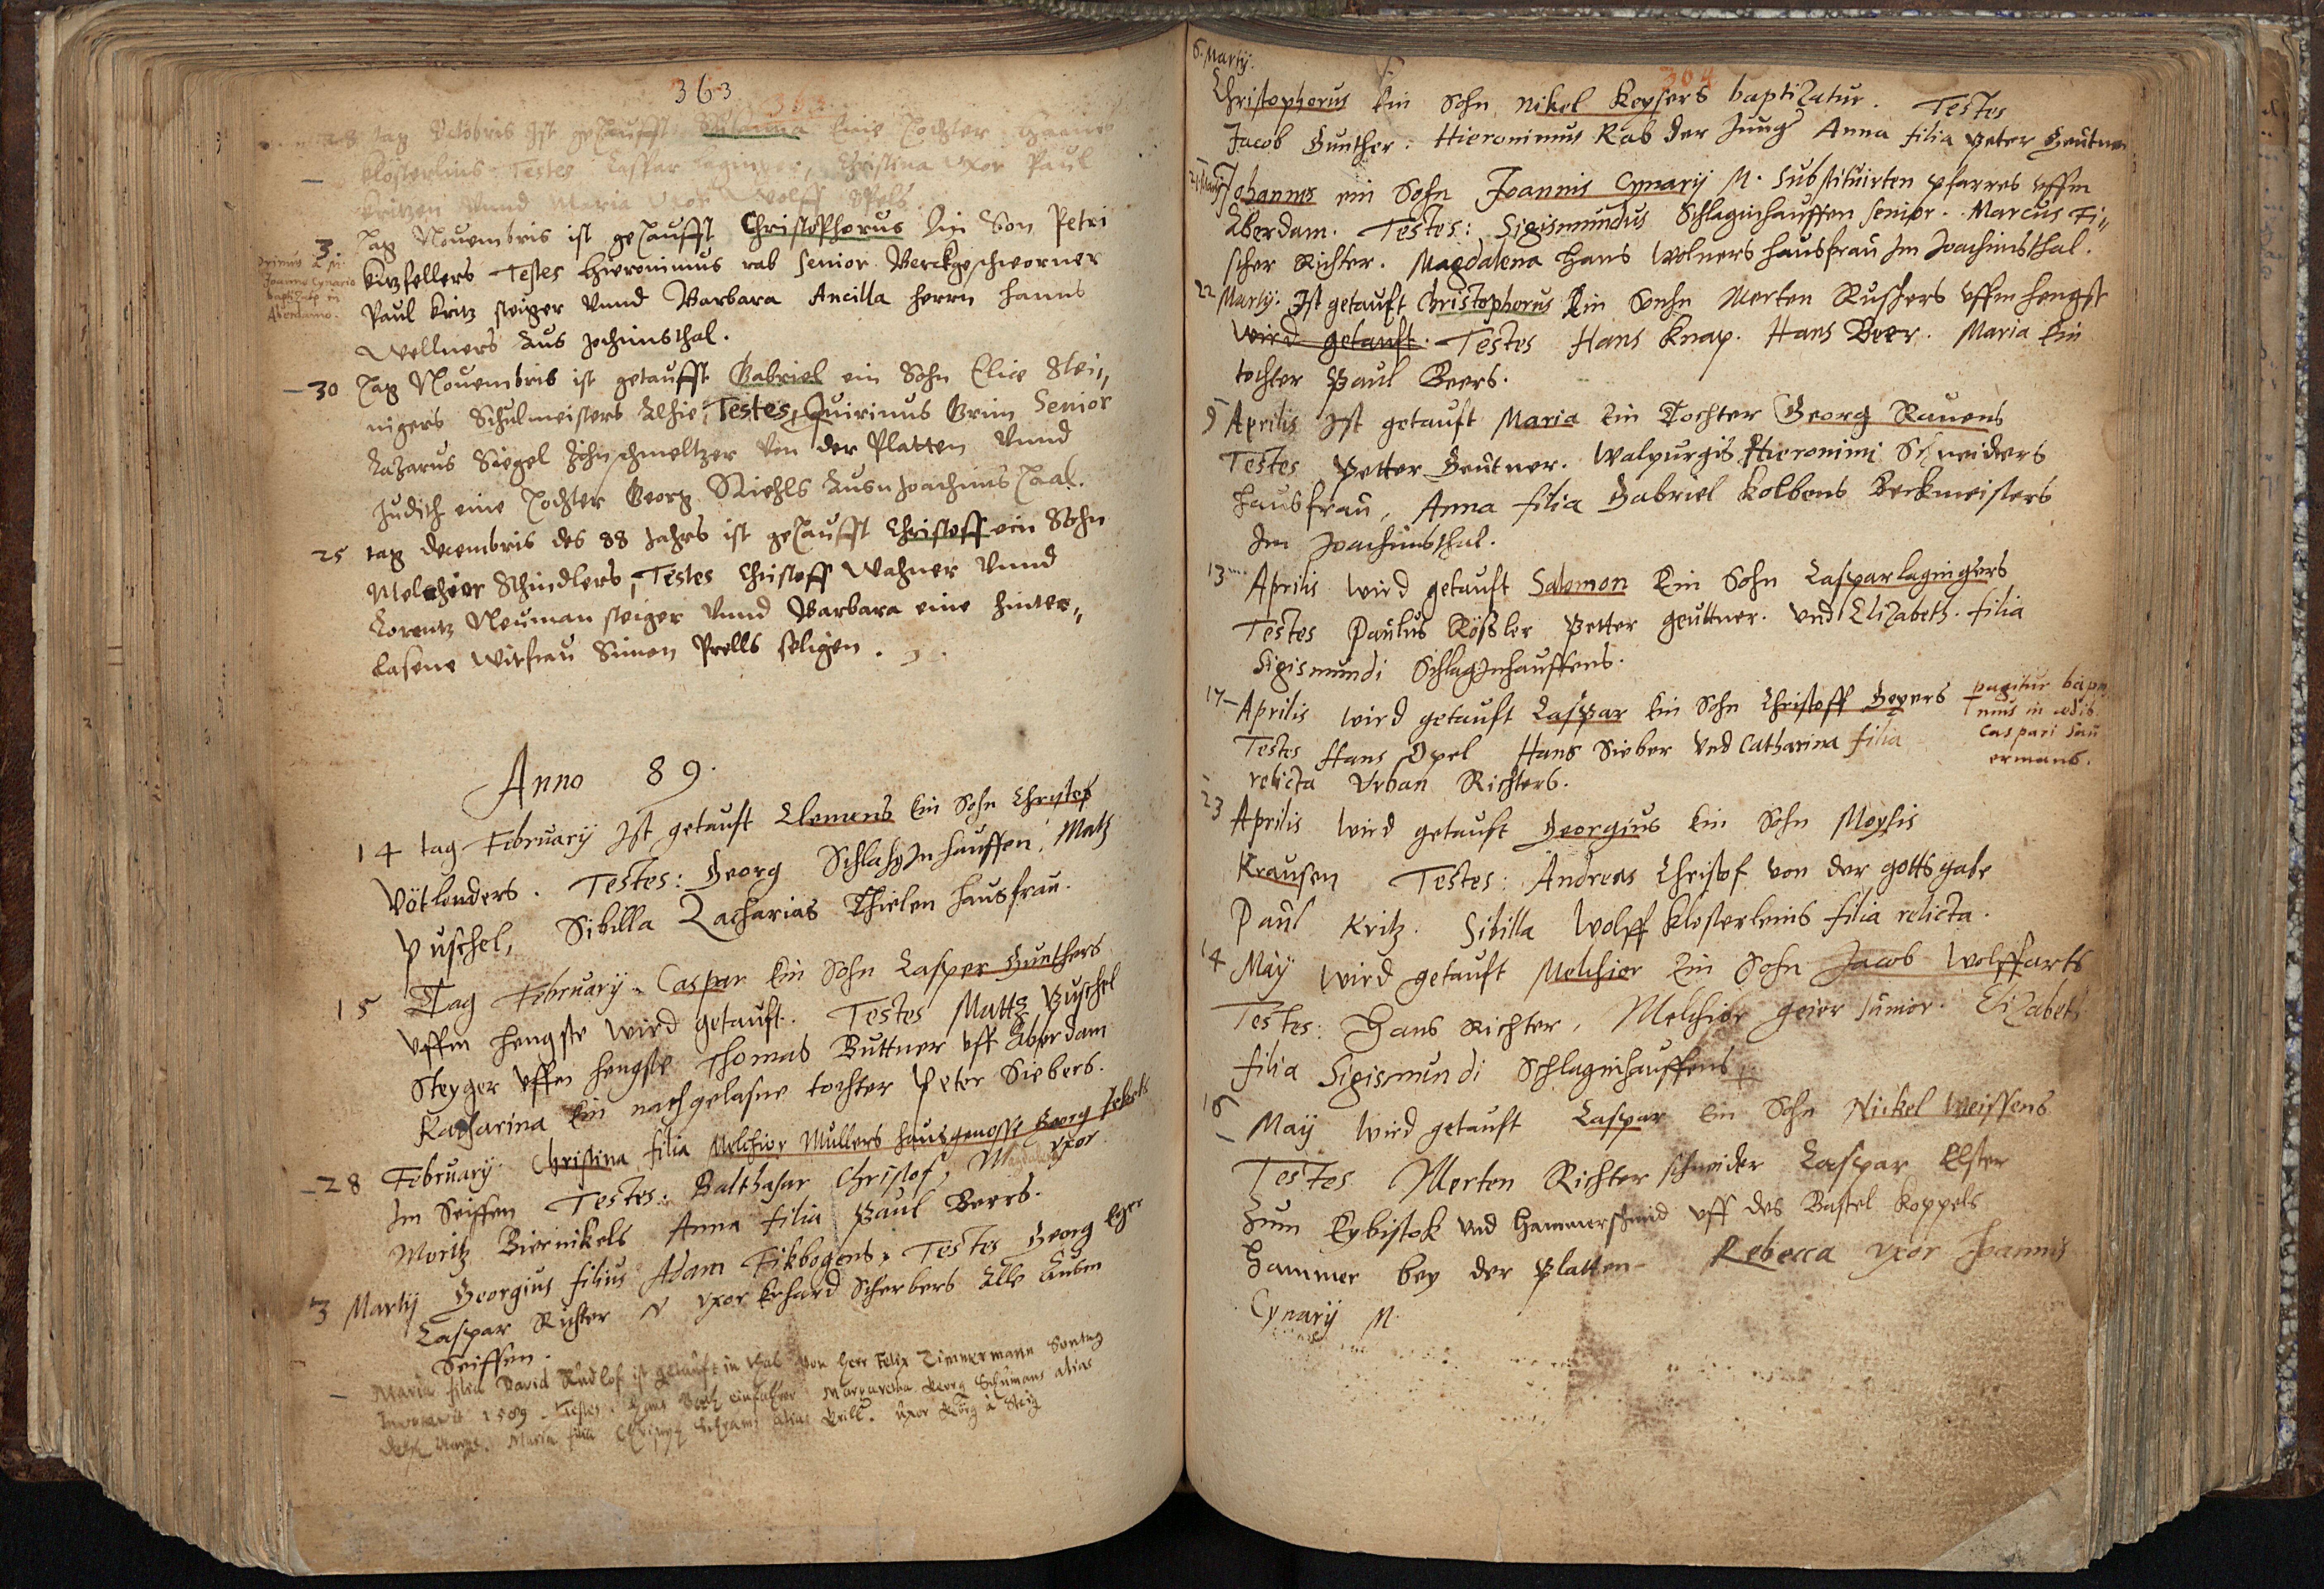 363
363
tag Octobris Ist getaufft Susanna Eine Tochter Hanns
Klösterlins Testes Caspar Laginger, Christina uxor Paul
Kritzen Vnnd Maria Vxor Wolff
3. Tag Nouembris ist getaufft Christophorus Ein Son Petri
primus a
Joanne Cynario
baptizatg in
Aberdamo.
Testes Hieronimus rab senior Berckgeschworner
Paul Kritz steiger Vnnd Barbara Ancilla herrn hanns
Wellners Aus Jochimsthal.
30 Tag Nouembris ist getaufft Gabriel ein Sohn Eliae Stei„
nigers Schulmeisters Alhie, Testes, Quirinus Grim Senior
Lazarus Siegel Zihnschmeltzer Von der Platten Vnnd
Judith eine Tochter Georg Riehls Ausn Joachimsthal.
25 tag decembris des 88 Jahrs ist getaufft Christoff ein Sohn
Melchior Schindlers, Testes Christoff Wahner Vnnd
Lorentz Neuman steiger Vnnd Barbara eine hinter„
Lasene Witfrau Simon Prells seligen.
Anno 89.
14 tag February Ist getauft Clemens Ein Sohn Christof
Vötlenders. Testes: Georg SchlahgInhauffen, Matz
Püschel, Sibilla Zacharias Thielen hausfrau.
15 Tag February. Caspar Ein Sohn Casper Gunthers
Vffm hengste wird getauft. Testes Mattz Puschel
Steyger Vffm hengste Thomas Buttner Vff Aberdam
Katharina Ein nachgelasne tochter Peter Siebers.
28 February. Christina filia Melchior Mullers hausgenosse Georg
Im Seiffen Testes: Balthasar Christof, M uxor
Moritz Biernikels Anna filia Paul Beers.
3 Martij Georgius filius Adam Fikbogens, Testes Georg Eger
Caspar Richter N uxor Erhard Scherbers Alle Ausm
Seiffen.
Maria filia David Rudlof ist getauft in thal Von Herr Felix Zimmermann Sontag
Invocavit 1589. Testes: Hans einfahrer Margaretha Georg Schumans alias
Maria filia Schrams alias Brill. uxor
6. Martij.
304
Christopherus Ein Sohn Nikel Keysers baptizatur. Testes
Jacob Gunther. Hieronimus Rab der Jung Anna filia Peter Geutner
21 Martij Johannes ein Sohn Joannis Cynarij M. Substituirten pfarres Vffm
Aberdam. Testes: Sigismundus Schlaginhauffen senior. Marcus Fi„
scher Richter. Magdalena Hans Wolners hausfrau Im Joachimsthal.
22 Martij. Ist getauft Christopherus Ein Sonhn Merten Rushers Vffm hengst
wird getauft. Testes Hans Knap. Hans Beer. Maria Ein
tochter Paul Beers.
9 Aprilis Ist getauft Maria Ein Tochter Georg Rauens
Testes Petter Geutner. Walpurgis Hieronimi Schneiders
hausfrau, Anna filia Gabriel Kolbens Berkmeisters
Im Joachimsthal.
13 Aprilis wird getauft Salomon Ein Sohn Casparlagingers
Testes Paulus Rößler Petter geuttner. Vnd Elizabeth. filia
Sigismundi SchlagInhauffens.
17 Aprilis wird getauft Caspar Ein Sohn Christoff Geyers
Testes Hans Opel Hans Sieber Vnd Catharina filia
relicta Vrban Richters.
in ædib.
Caspari Sau
ermans.
23 Aprilis wird getauft Georgius Ein Sohn Moysis
Krausen Testes: Andreas Christof Von der gottsgabe
Paul Kritz. Sibilla Wolff Klosterleins filia relicta.
14 May wird getauft Melchior Ein Sohn Jacob Wolffarts
Testes: Hans Richter, Melchior geier Junior. Elizabeth
filia Sigismundi Schlaginhauffens
19 May wird getauft Caspar Ein Sohn Nickel Weissens
Testes Merten Richter schneider Caspar Elster
Zum Eybistok Vnd Hammerschmid Vff des Bastel Koppels
Hammer bey der Platten Rebecca uxor Joannis
Cynarij M.